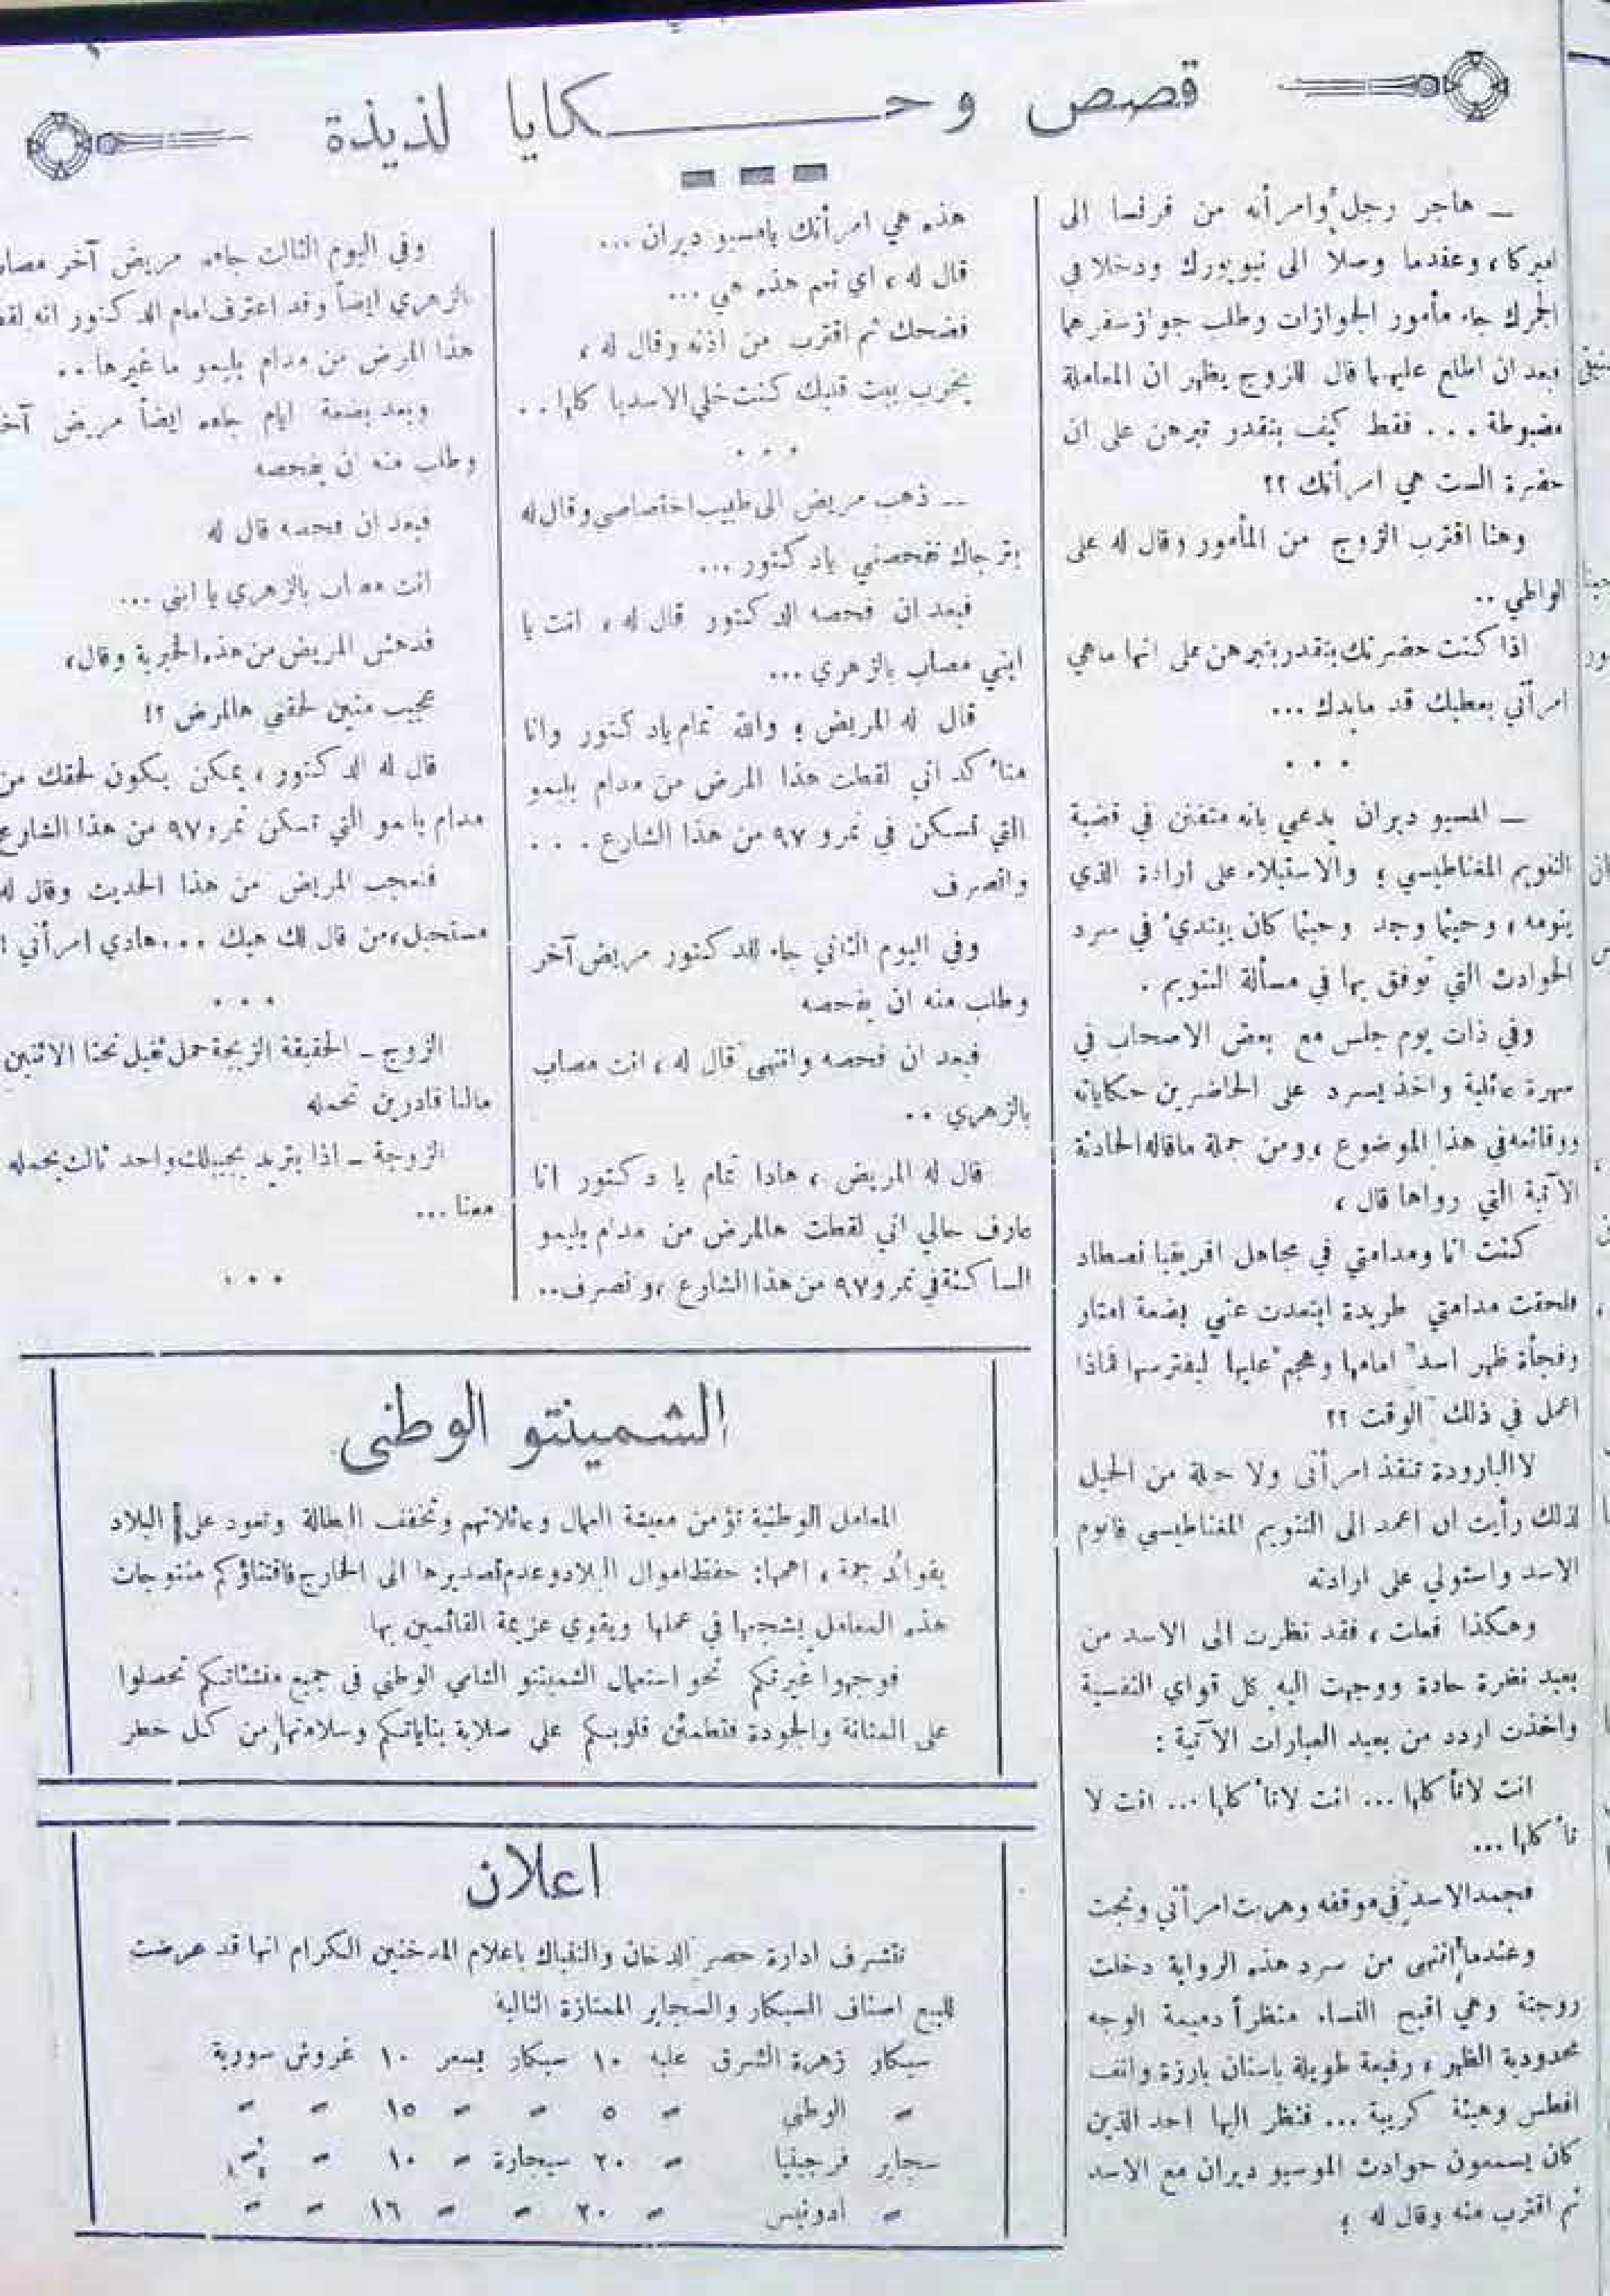 قصص وحكايا لذيذة
ــ هاجر رجل وامرأته من فرنسا الى
اميركا ، وعندما وصلا الى نيويورك ودخلا في
الجمرك جاء مأمور الجوازات وطلب جواز سفرهما
فبعد ان اطلع عليهما قال للزوج يظهر ان المعاملة
مضبوطة ... فقط كيف بتقدر تبرهن على ان
حضرة الست هي امرأتك ؟؟
وهنا اقترب الزوج من المأمور وقال له على
الواطي ..
اذا كنت حضرتك بتقدر بتبرهن على انها ماهي
امرأتي بعطيك قد مابدك ...
...
ــ المسيو ديران يدعي بانه متفنن في قضية
التنويم المغناطيسي ؛ والاستيلاء على ارادة الذي
ينومه ، وحيثما وجد وحيثما كان يبتدئ في سرد
الحوادث التي توفق بها في مسألة التنويم .
وفي ذات يوم جلس مع بعض الاصحاب في
سهرة عائلية واخذ يسرد على الحاضرين حكاياته
ووقائعه في هذا الموضوع ، ومن جملة ماقاله الحادثة
الآتية التي رواها قال ،
كنت انا ومدامتي في مجاهل افريقيا نصطاد
فلحقت مدامتي طريدة ابتعدت عني بضعة امتار
وفجأة ظهر اسد امامها وهجم عليها ليفترسها فماذا
اعمل في ذلك الوقت ؟؟
لاالبارودة تنقذ امرأتي ولا حيلة من الحيل
لذلك رأيت ان اعمد الى التنويم المغناطيسي فانوم
الاسد واستولي على ارادته
وهكذا فعلت ، فقد نظرت الى الاسد من
بعيد نظرة حادة ووجهت اليه كل قواي النفسية
واخذت اردد من بعيد العبارات الآتية :
انت لاتأكلها ... انت لاتأكلها ... انت لا
تأكلها ...
فجمد الاسد في موقفه وهربت امرأتي ونجت
وعندما انتهى من سرد هذه الرواية دخلت
زوجتة وهي اقبح النساء منظراً دميمة الوجه
محدودية الظهر ، رفيعة طويلة باسنان بارزة وانف
افطس وهيئة كريهة ... فنظر اليها احد الذين
كان يسمعون حوادث الموسيو ديران مع الاسد
ثم اقترب منه وقال له ؛
هذه هي امرأتك يامسيو ديران ...
قال له ، اي نعم هذه هي ...
فضحك ثم اقترب من اذنه وقال له ،
يخرب بيت قلبك كنت خلي الاسد يا كلها ..
...
ــ ذهب مريض الى طبيب اختصاصي وقال له
بترجاك تفحصني ياد كتور ...
فبعد ان فحصه الدكتور قال له ، انت يا
ابني مصاب بالزهري ...
قال له المريض ؛ والله تمام ياد كتور وانا
متأكد اني لقطت هذا المرض من مدام بليمو
التي تسكن في نمرو ٩٧ من هذا الشارع ...
وانصرف
وفي اليوم الثاني جاء للدكتور مريض آخر
وطلب منه ان يفحصه
فبعد ان فحصه وانتهى قال له ، انت مصاب
بالزهري ..
قال له المريض ، هادا تمام يا دكتور انا
عارف حالي اني لقطت هالمرض من مدام بليمو
الساكنة في نمرو ٩٧ من هذا الشارع ، وانصرف ..
وفي اليوم الثالث جاءه مريض آخر مصاب
بالزهري ايضاً وقد اعترف امام الدكتور انه لقط
هذا المرض من مدام بليمو ما غيرها ..
وبعد بضعة ايام جاءه ايضاً مريض آخر
وطلب منه ان يفحصه
فبعد ان فحصه قال له
انت مصاب بالزهري يا ابني ...
فدهش المريض من هذه الخبرية وقال ،
عجيب منين لحقني هالمرض ؟!
قال له الدكتور ، يمكن يكون لحقك من
مدام بليمو التي تسكن نمرو ٩٧ من هذا الشارع
فتعجب المريض من هذا الحديث وقال له
مستحيل ، من قال لك هيك ... هادي امرأتي !
...
الزوج ــ الحقيقة الزيجة حمل ثقيل نحنا الاثنين
مالنا قادرين نحمله
الزوجة ــ اذا بتريد بجيبلك واحد ثالث يحمله
معنا ...
...
الشمينتو الوطني
المعامل الوطنية تؤمن معيشة العمال وعائلاتهم وتخفف البطالة وتعود على البلاد
بفوائد جمة ، اهمها: حفظ اموال البلاد وعدم تصديرها الى الخارج فاقتناؤكم منتوجات
هذه المعامل يشجعها في عملها ويقوي عزيمة القائمين بها
فوجهوا غيرتكم نحو استعمال الشمينتو الشامي الوطني في جميع منشئاتكم تحصلوا
على المتانة والجودة فتطمئن قلوبكم على صلابة بناياتكم وسلامتها من كل خطر
اعلان
تتشرف ادارة حصر الدخان والتنباك باعلام المدخنين الكرام انها قد عرضت
للبيع اصناف السيكار والسجاير الممتازة التالية
سيكار زهرة الشرق علبه ١٠ سيكار بسعر ١٠ غروش سورية
〃 الوطني 〃 ٥ 〃 〃 ١٥ 〃 〃
سجاير فرجينيا 〃 ٢٠ سيجارة 〃 ١٠ 〃
〃 ادونيس 〃 ٢٠ 〃 〃 ١٦ 〃 〃